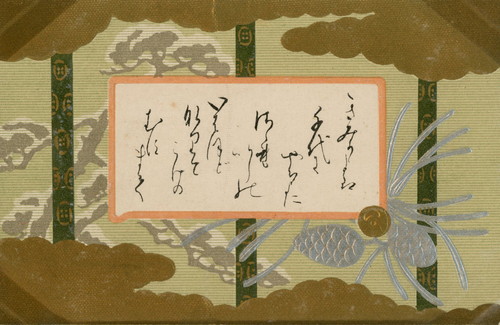 きみか代は
千代に
やちよに
さゝれ
いしの
いはほと
なりて
こけの
むす
まて